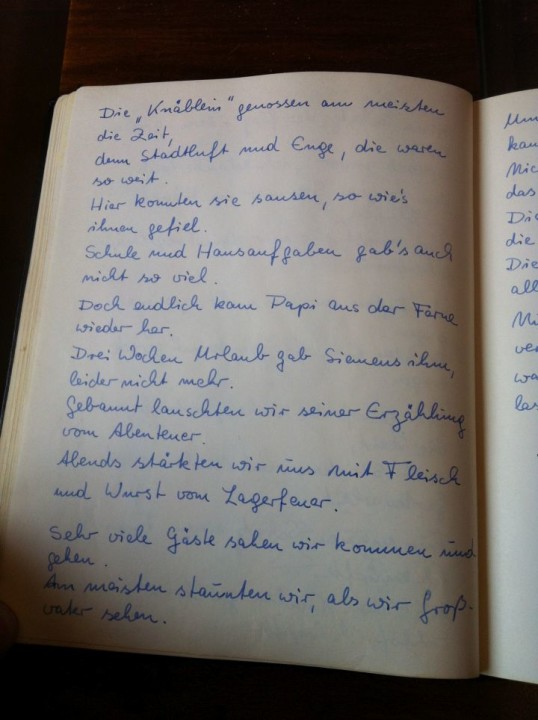 Die „Knäblein" genossen am meisten
die Zeit,
denn Stadtluft und Enge, die waren
so weit.
Hier konnten sie sausen, so wie's
ihnen gefiel.
Schule und Hausaufgaben gab's auch
nicht so viel.
Doch endlich kam Papi aus der Ferne
wieder her.
Drei Wochen Urlaub gab Siemens ihm,
leider nicht mehr.
Gebannt lauschten wir seiner Erzählung
vom Abenteuer.
Abends stärkten wir uns mit Fleisch
und Wurst vom Lagerfeuer.
Sehr viele Gäste sahen wir kommen und
gehen.
Am meisten staunten wir, als wir Groß-
vater sehen.
kam
das
die
all